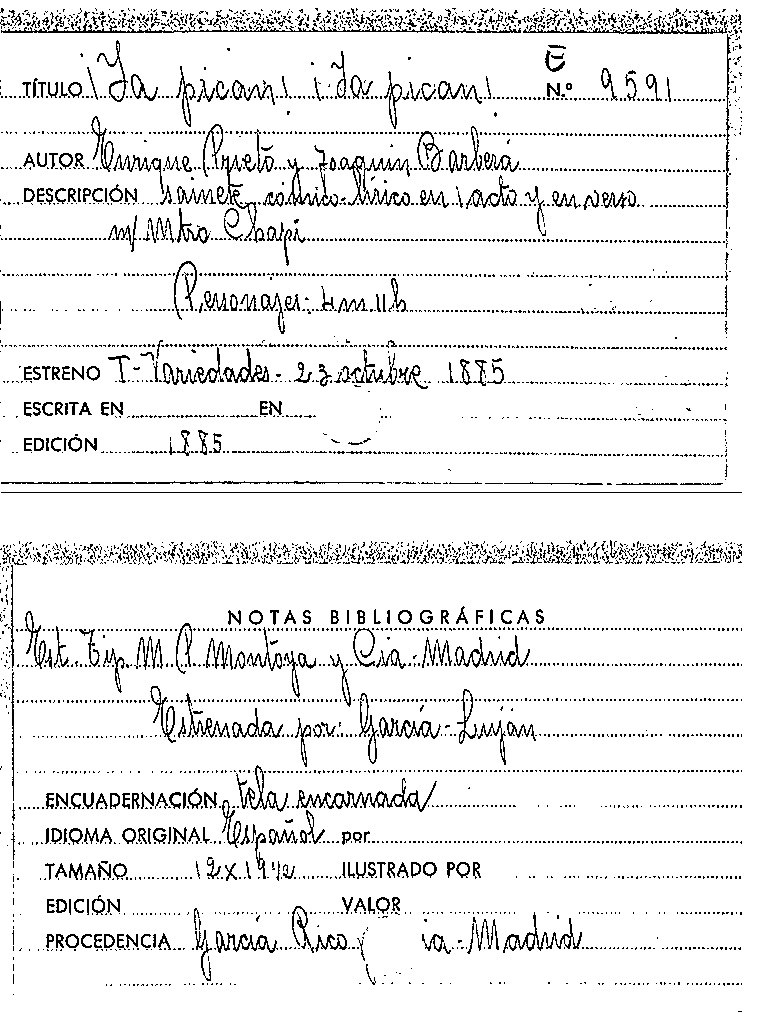 E
TÍTULO ¡Ya pican! ¡Ya pican! N.º 9591
AUTOR Enrique Prieto y Joaquin Barberá
DESCRIPCIÓN Sainete cómico-lírico en 1 acto y en verso
m/ Mtro Chapí
Personajes: 4m 11h
ESTRENO T-Variedades- 23 octubre 1885
ESCRITA EN EN
EDICIÓN 1885
NOTAS BIBLIOGRÁFICAS
Est. Tip. M. P. Montoya y Cia-Madrid
Estrenada por: García-Luján
ENCUADERNACIÓN tela encarnada
IDIOMA ORIGINAL Español por
TAMAÑO 12x19½ ILUSTRADO POR
EDICIÓN VALOR
PROCEDENCIA García Rico y ia-Madrid